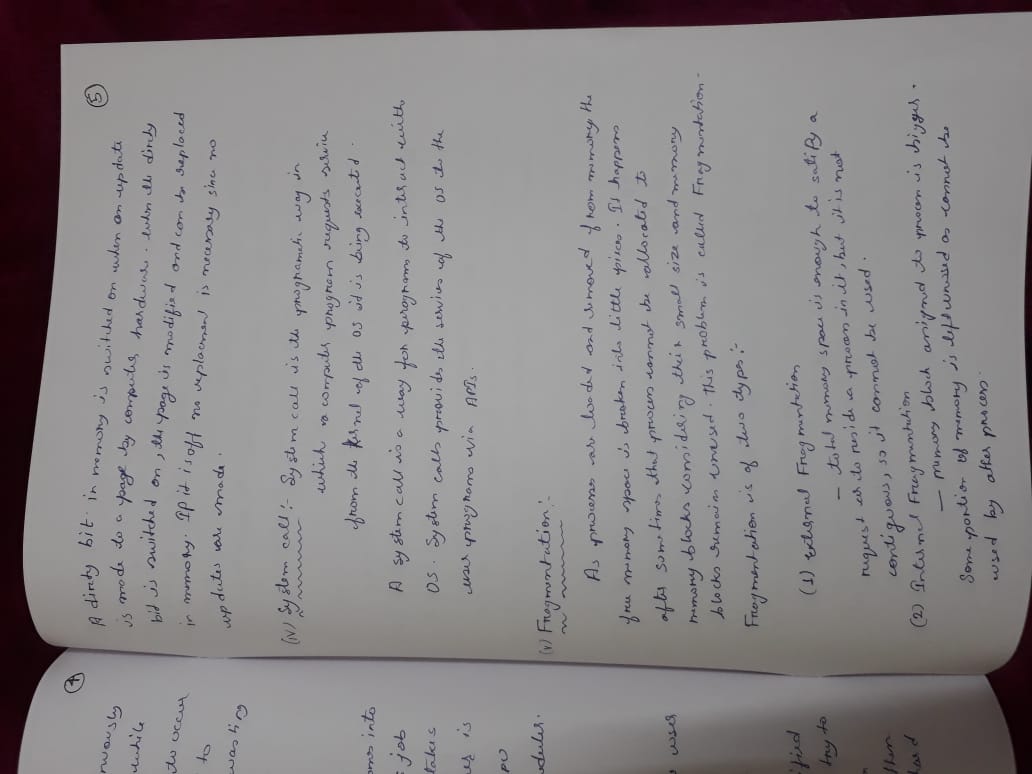 4
rwously
while
to occur
to
wasting
oms into
job
takes
is
PU
odules.
user
ified
try to
then
hard
5
A dirty bit in memory is switched on when an update
is made to a page by computer hardware. When the dirty
bid is switched on, the page is modified and can be replaced
in memory. If it is off no replacment is necessary since no
updates are made.
(iv) System call :- System call is the programetic way in
which a computer program requests service
from the kernel of the OS it is being executed.
A system call is a way for programs to interact with
OS. System calls provides the services of the OS to the
user programs via APIs.
(v) Fragmentation :-
As processes are loaded and removed from memory, the
free memory space is broken into little pieces. It happens
after sometimes that process cannot be allocated to
memory blocks considering their small size and memory
blocks remains unused. This problem is called Fragmentation.
Fragmentation is of two types :-
(1) External Fragmentation
— total memory space is enough to satify a
request or to reside a process in it, but it is not
contiguous, so it cannot be used.
(2) Internal Fragmentation
— Memory block assigned to process is bigger.
Some portion of memory is left unused as cannot be
used by other process.